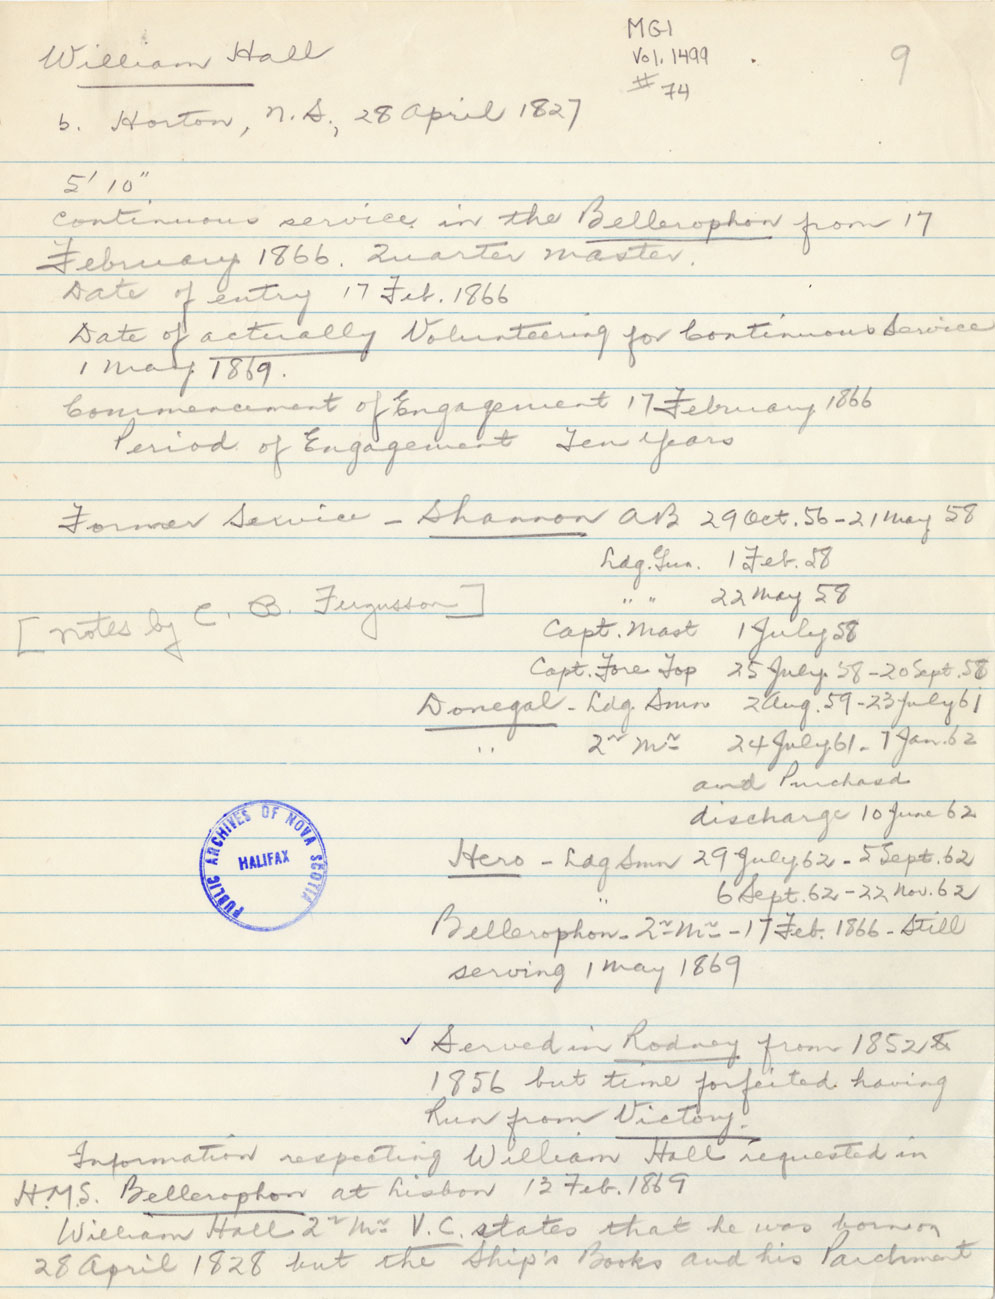 MG1
Vol. 1499
# 74
9
William Hall
b. Horton, N.S., 28 April 1827
5' 10"
continuous service in the Bellerophon from 17
February 1866. Quarter master.
Date of entry 17 Feb. 1866
Date of actually Volunteering for Continuous Service
1 May 1869.
Commencement of Engagement 17 February 1866
Period of Engagement Ten Years
Former Service - Shannon AB 29 Oct. 56 - 21 May 58
Ldg. Gun. 1 Feb. 58
" " 22 May 58
[Notes by C. B. Fergusson]
Capt. Mast 1 July 58
Capt. Fore Top 25 July 58 - 20 Sept. 58
Donegal - Ldg Smn 2 Aug. 59 - 23 July 61
" 2nd Mr 24 July 61 - 7 Jan. 62
and Purchasd
discharge 10 June 62
PUBLIC ARCHIVES OF NOVA SCOTIA
HALIFAX
Hero - Ldg Smn 29 July 62 - 5 Sept. 62
" 6 Sept. 62 - 22 Nov. 62
Bellerophon - 2nd Mr - 17 Feb. 1866 - Still
serving 1 May 1869
✓ Served in Rodney from 1852 &
1856 but time forfeited having
Run from Victory.
Information respecting William Hall requested in
H.M.S. Bellerophon at Lisbon 13 Feb. 1869
William Hall 2nd Mr V.C. states that he was born on
28 April 1828 but the Ship's Books and his Parchment